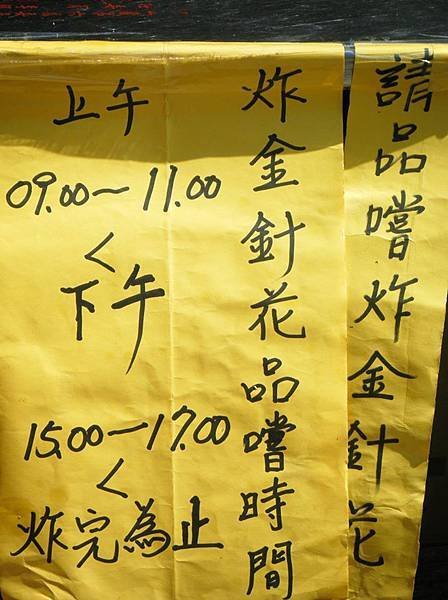 請品嚐炸金針花
炸金針花品嚐時間
上午
09.00～11.00
<
下午
15.00－17.00
<
炸完為止